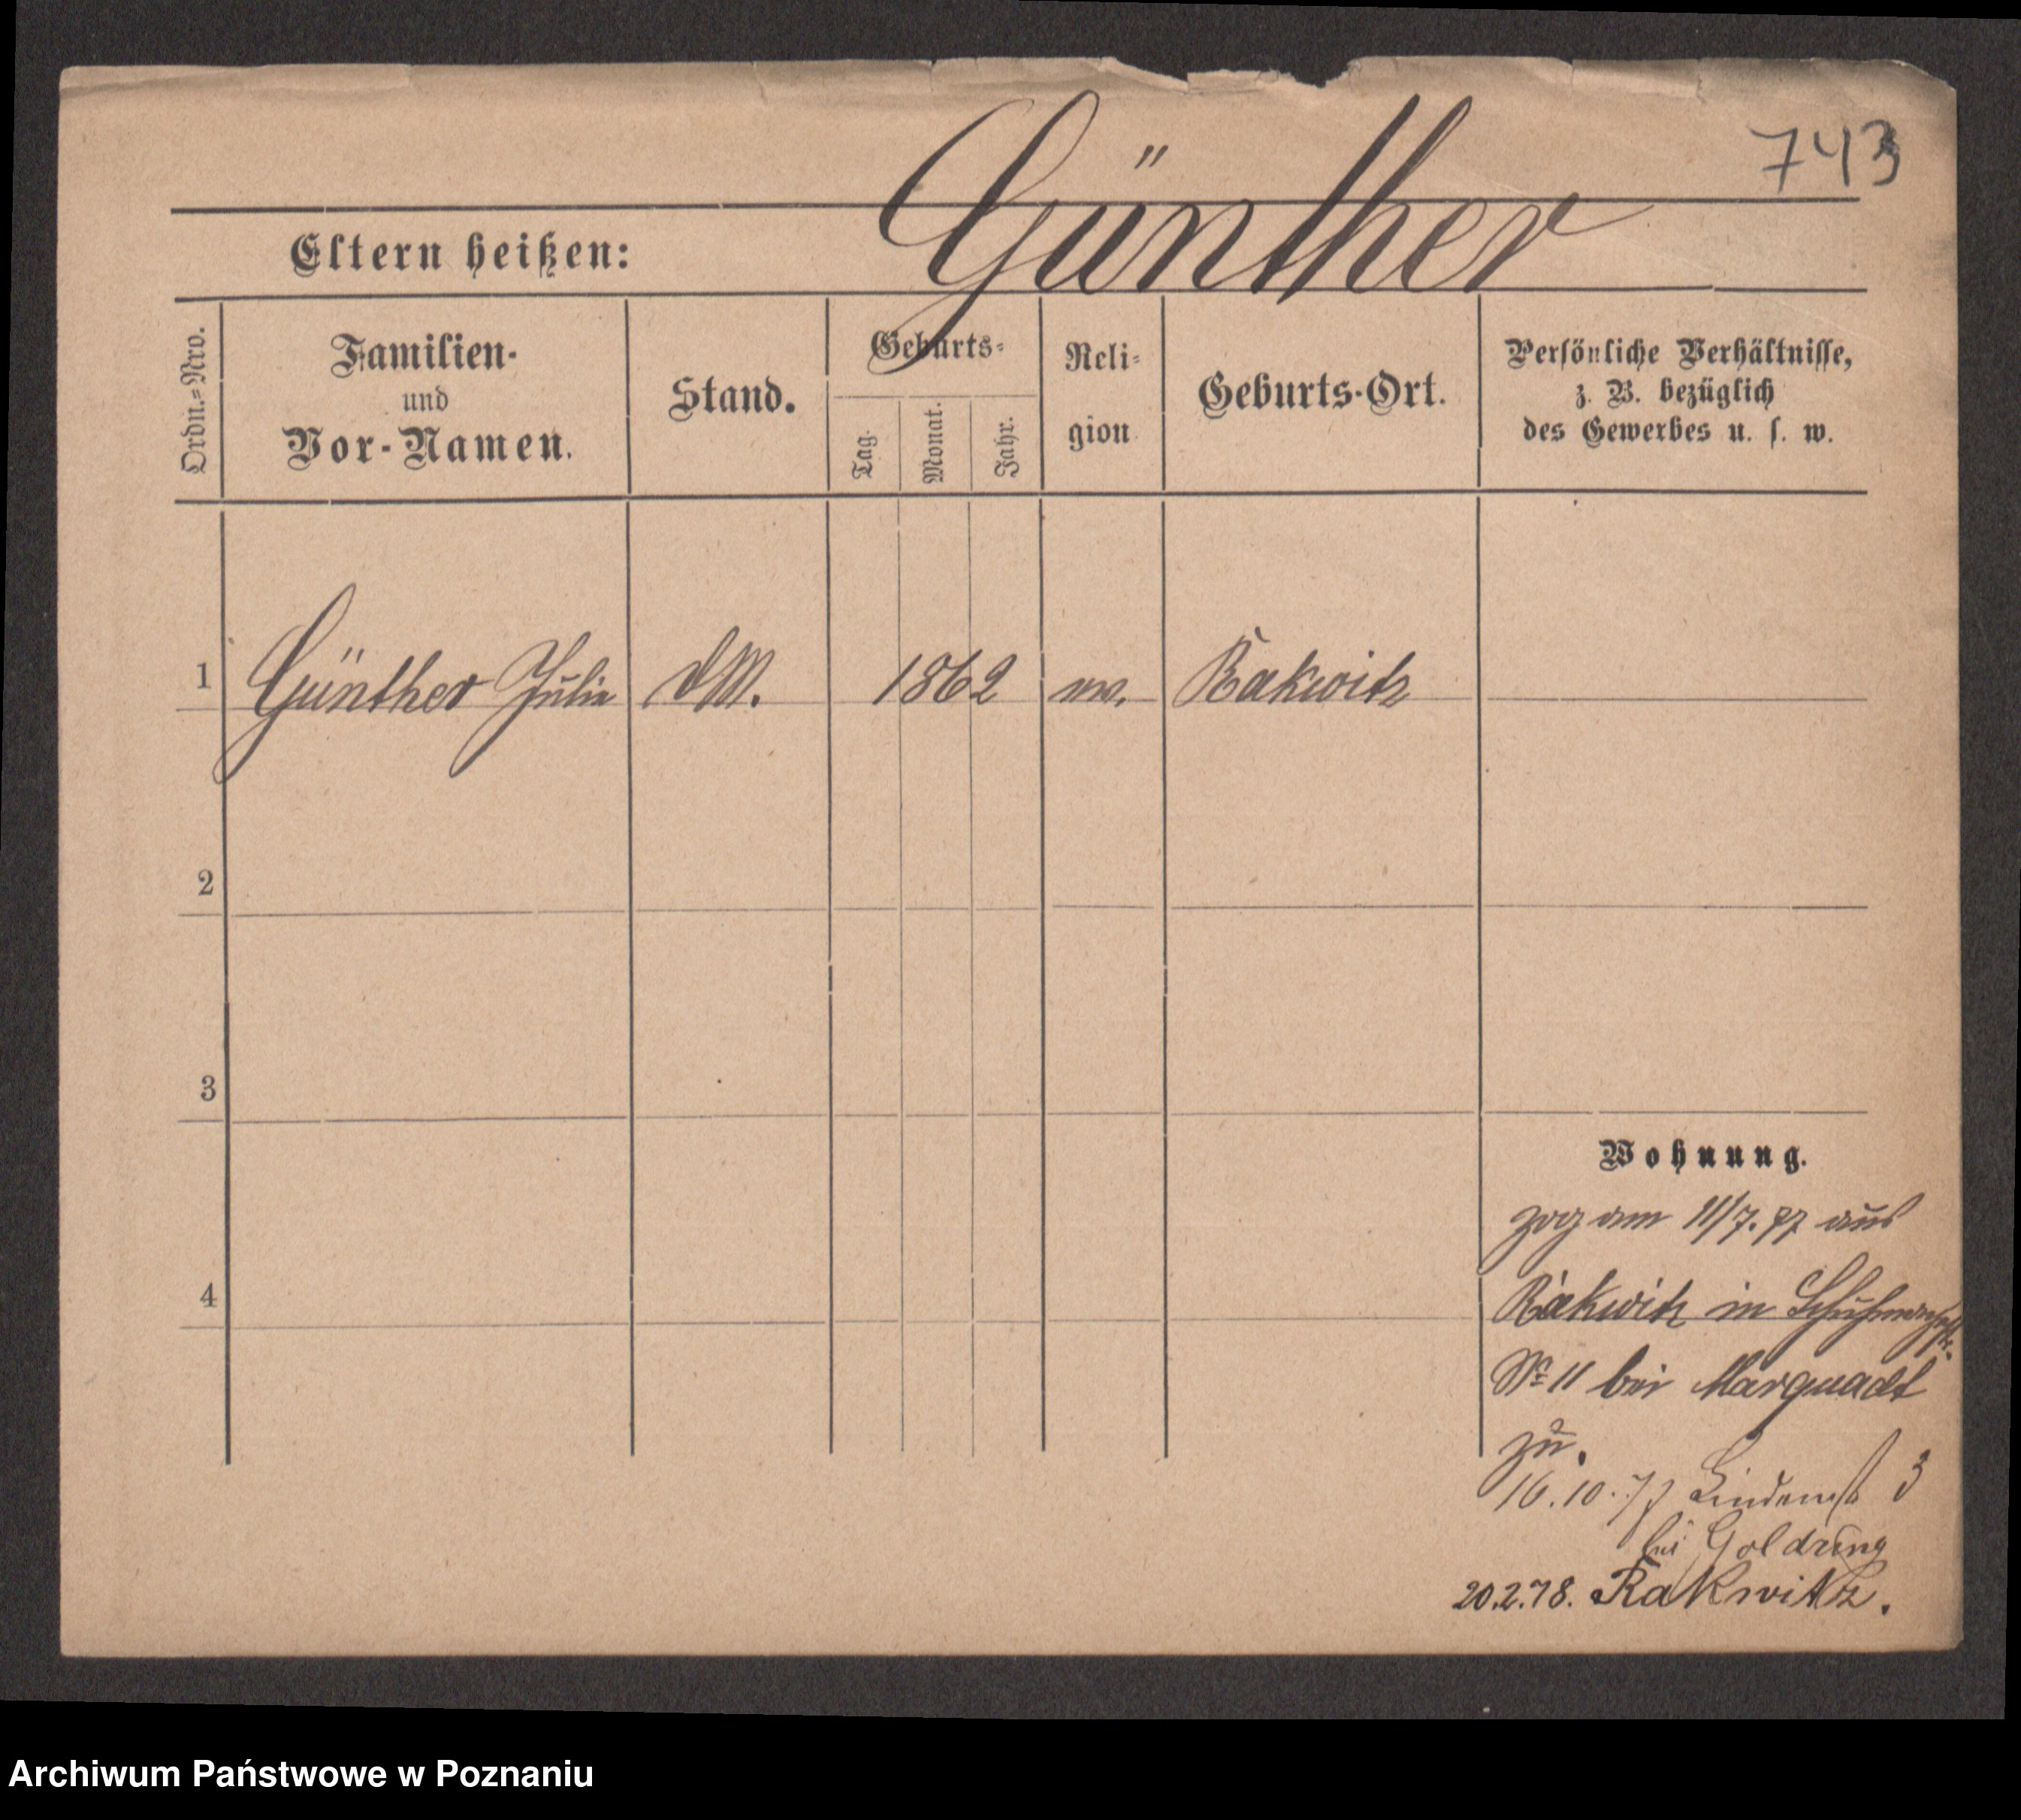 743
Günther
Eltern heißen:
Ordn.=Nro.
Familien-
und
Vor-Namen.
Stand.
Geburts=
Tag.
Monat.
Jahr.
Reli=
gion
Geburts-Ort.
Persönliche Verhältnisse,
z. B. bezüglich
des Gewerbes u. s. w.
1 Günther Julie DM. 1862 ev. Rakwitz
2
3
4
Wohnung.
zog am 11/7. 77 aus
Rakwitz in
No 11 bei Marquadt
zu.
16.10.77 Lindenst 3
bei Goldring
20.2.78. Rakwitz.
Archiwum Państwowe w Poznaniu